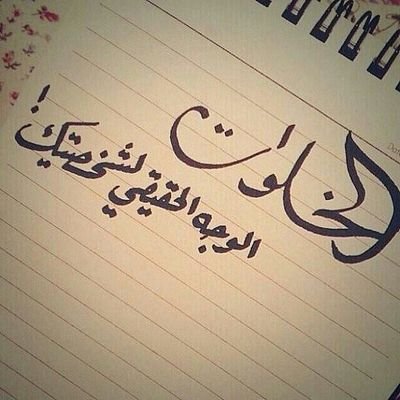 الخلوات
الوجه الحقيقي لشخصيتك!